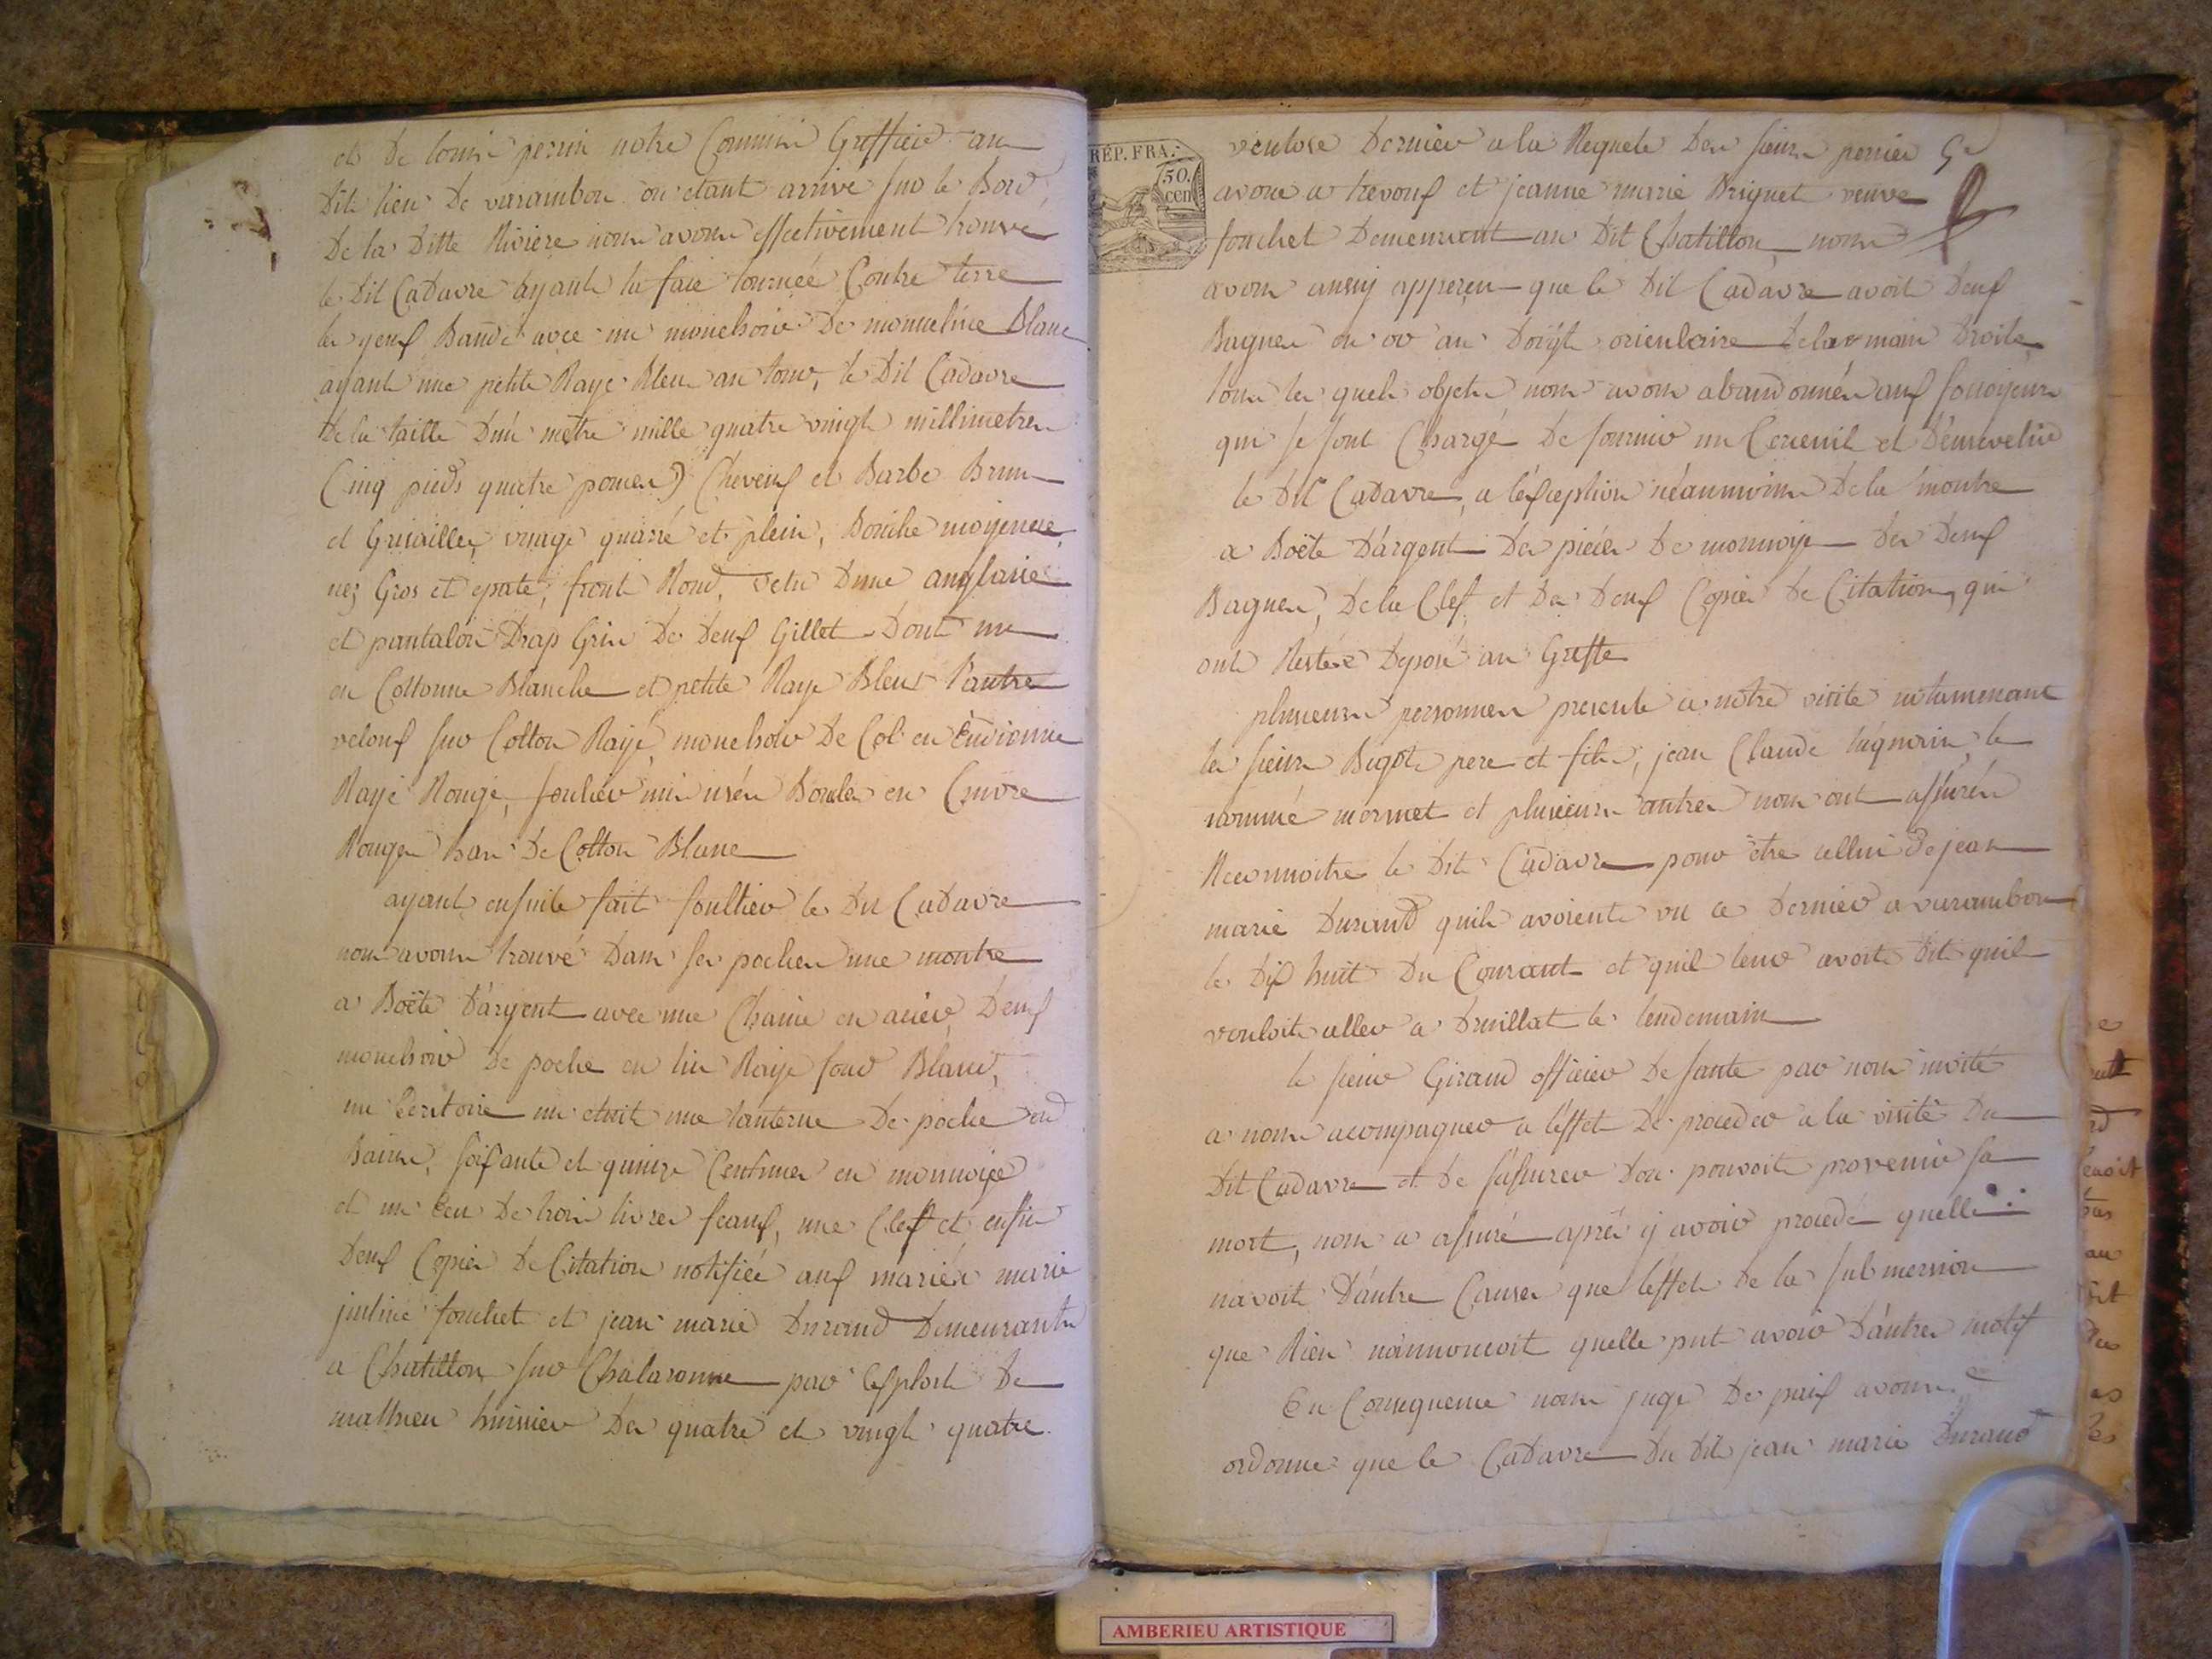 et De louis perrin notre Commis Greffier au
Dit lieu De varambon ou etant arrivé sur le Bord
De la Ditte Riviere nous avons effectivement trouvé
le Dit Cadavre ayant la face tournée Contre terre
les yeux Bandé avec un mouchoir De mousseline Blanc
ayant une petite Raye Bleu au tour, le Dit Cadavre
De la taille D'un mètre mille quatre vingt millimetres
Cinq pieds quatre pouces) Cheveux et Barbe Brun
et Grisailles, visage quarré et plein, Bouche moyenne,
nez Gros et epaté, front Rond, vetu D'une anglaise
et pantalon Drap Gris De Deux Gillet Dont un
en Cottonne Blanche et petite Raye Bleus l'autre
veloux sur Cotton Rayé, mouchoir De Col en Endienne
Rayé Rouge, soulier mi usés Boucles en Cuivre
Rouges bas De Cotton Blanc
ayant ensuite fait foullier le Dit Cadavre
nous avons trouvé Dans ses poches une montre
a Boëte D'argent avec une Chaine en acier, Deux
mouchoir De poche en lin Raye fond Blanc,
un Ecritoire un etuit une lanterne De poche en
soixante et quinze Centimes en monnoye
et un Ecu De trois livres faux, une Cleff et enfin
Deux Copies De Citation notifiée aux mariés marie
justine fouchet et jean marie Durand Demeurants
a Chatillon sur Chalaronne par lexploit De
mathieu huissier Des quatre et vingt quatre
REP. FRA.
50.
cen
ventose Dernier a la Requete Des sieurs perrier
avoué a trevoux et jeanne marie Briquet veuve
fouchet Demeurant au Dit Chatillon, nous
avons aussy apperçu que le Dit Cadavre avoit Deux
Bagues en or au Doigt oriculaire De la main Droite,
tous les quels objets nous avons abandonnés aux fossoyeurs
qui se sont Chargé De fournir un Cerceuil et D'ensevelir
le Dit Cadavre, a l'exception néanmoins De la montre
a Boëte D'argent Des pieces De monnoye des Deux
Bagues, De la Cleff, et Des Deux Copies De Citation, qui
ont Restés Deposé au Greffe
plusieurs personnes presente a notre visite notamment
les sieurs Bigot pere et fils, jean Claude le
nommé mermet et plusieurs autres nous ont assurés
Reconnoitre le Dit Cadavre pour être cellui De jean
marie Durand quils avoient vu ce Dernier a varambon
le Dix huit Du Courant et quil leur avoit Dit quil
vouloit aller a Druillat le lendemain
le sieur Giraud officier De santé par nous invité
a nous acompagner a l'effet De proceder a la visite Du
Dit Cadavre et De s'assurer D'ou pouvoit provenir sa
mort, nous a assuré aprés y avoir procedé quelle
n'avoit D'autre Causes que leffet De la submersion
que Rien n'annoncoit quelle put avoir D'autres motif
En Consequence nous juge De paix avons
ordonne que le Cadavre Du Dit jean marie Durand
AMBERIEU ARTISTIQUE